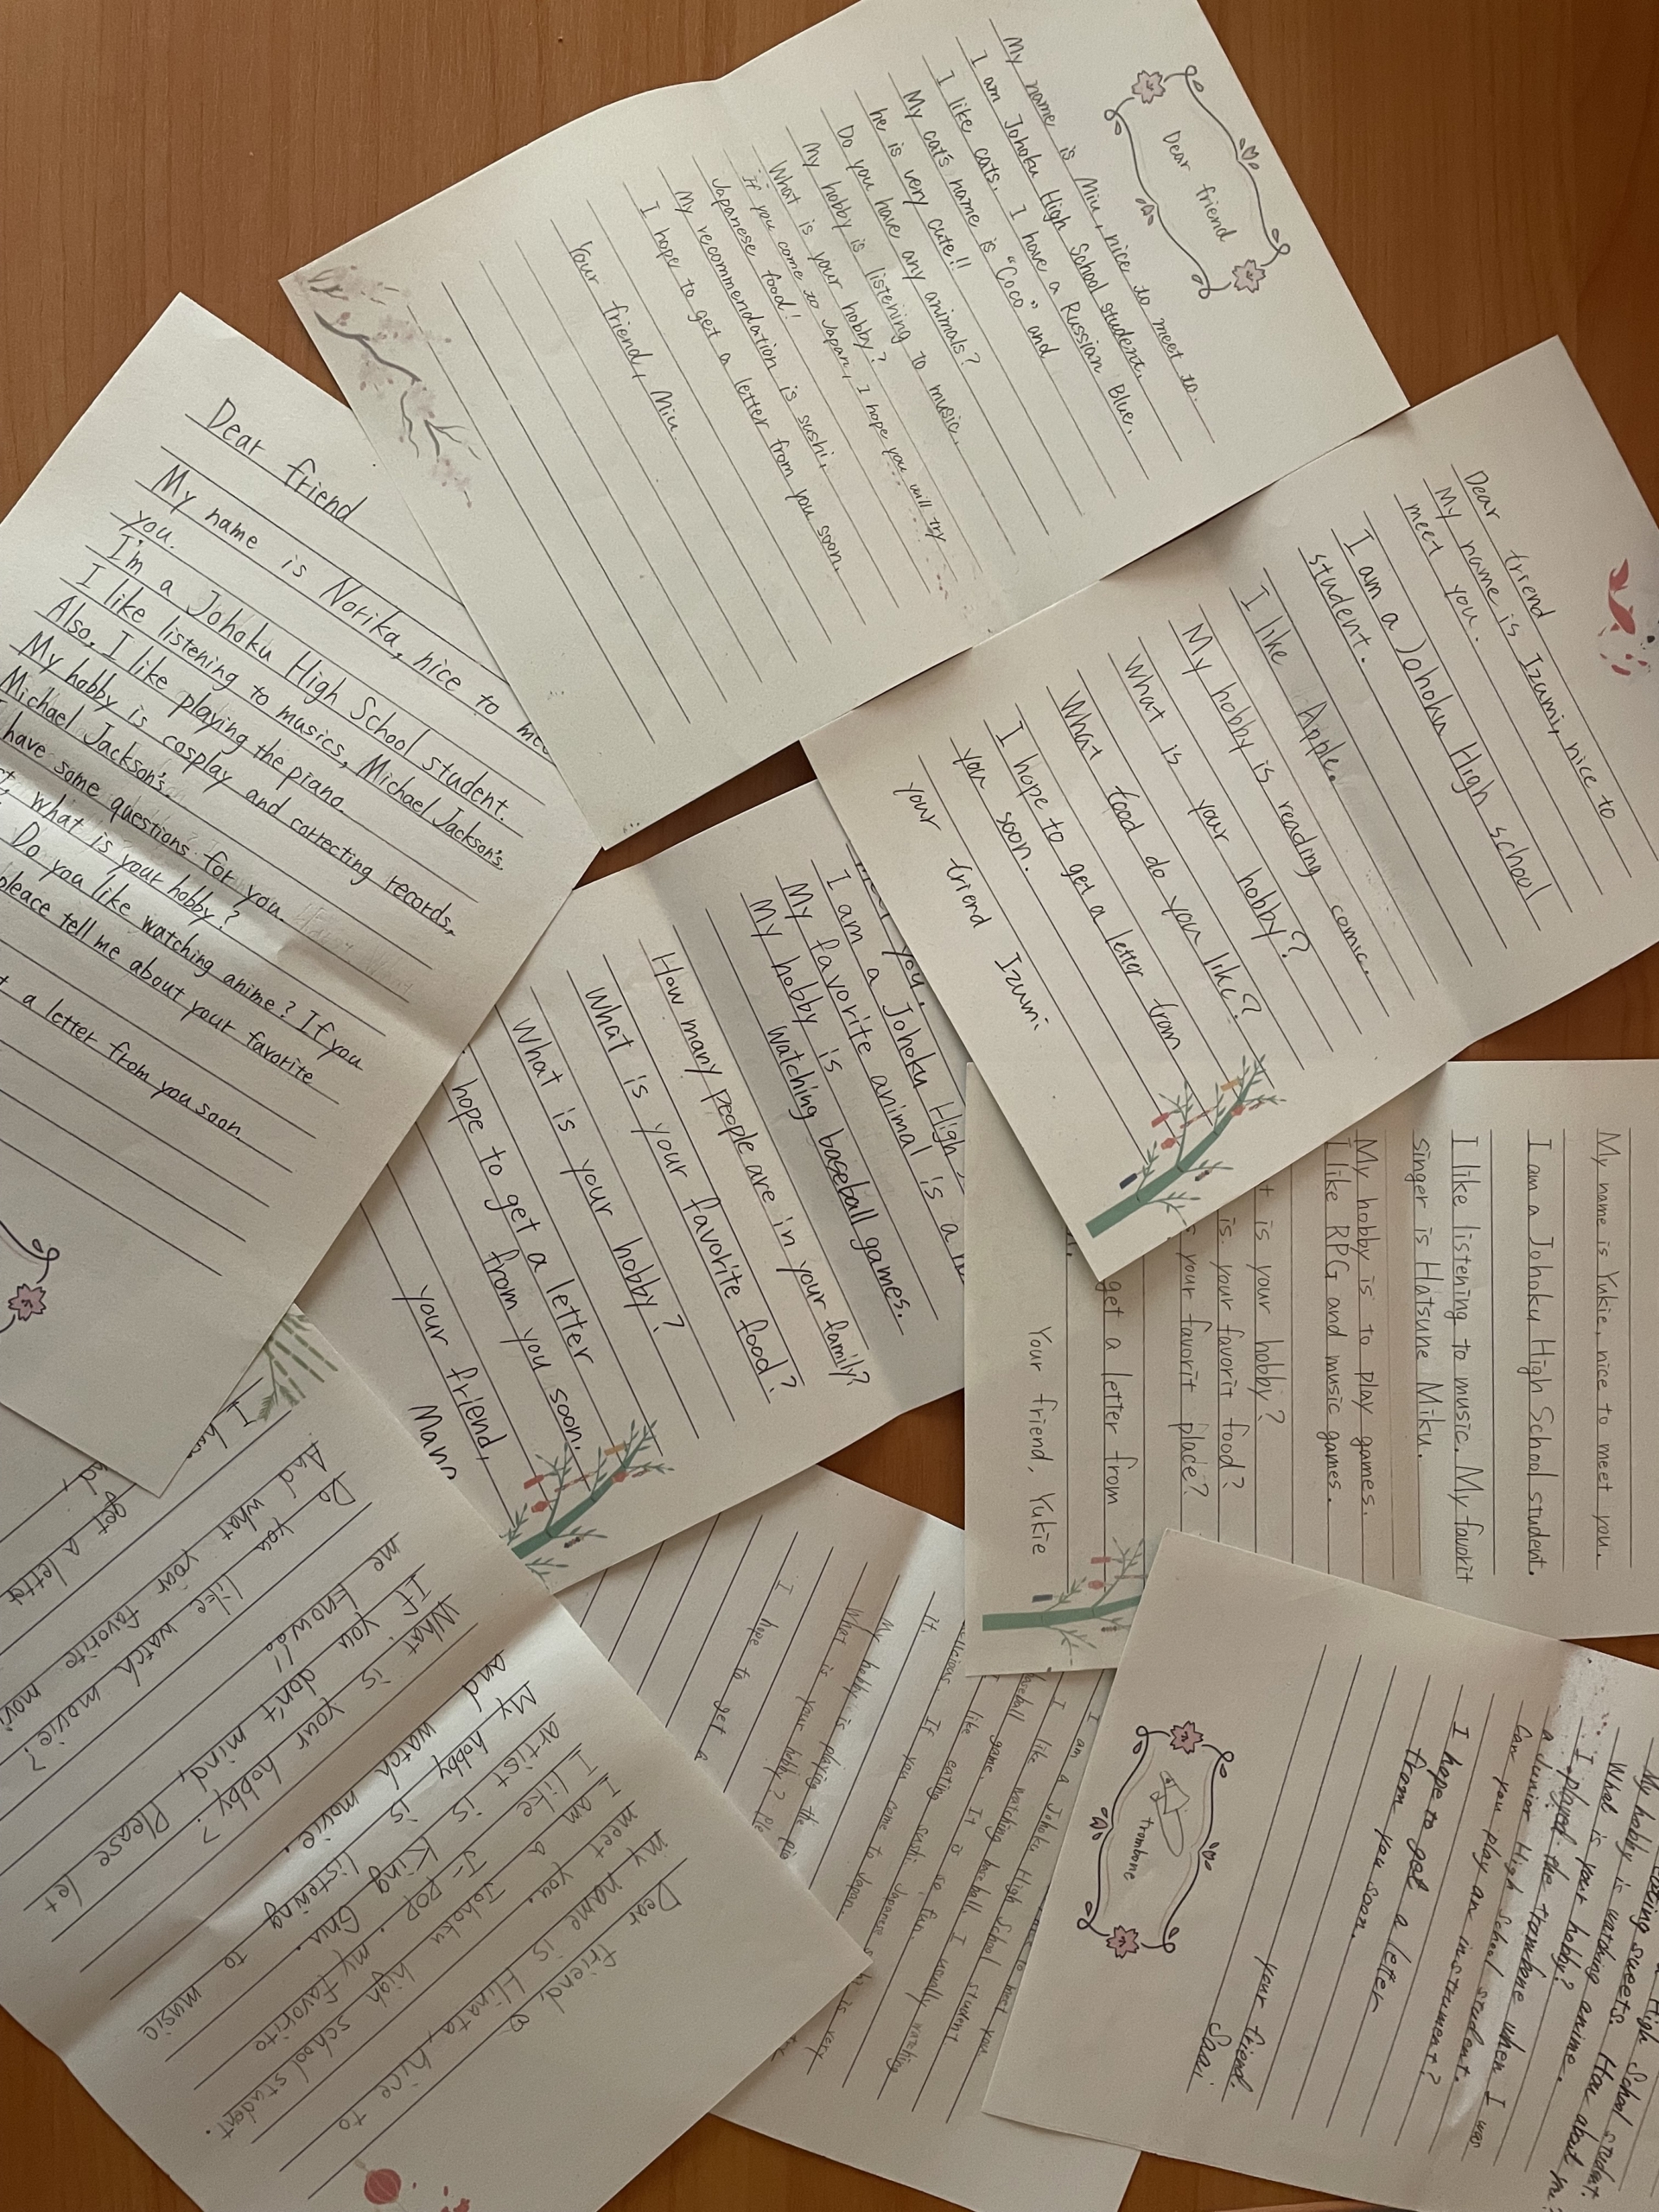 Dear friend
My name is Miu, nice to meet to.
I am Johoku High School student.
I like cats. I have a Russian Blue.
My cat's name is "Coco" and
he is very cute!!
Do you have any animals?
My hobby is listening to music.
What is your hobby?
If you come to Japan, I hope you will try
Japanese food!
My recommendation is sushi.
I hope to get a letter from you soon.
Your friend, Miu
Dear friend
My name is Izumi, nice to
meet you.
I am a Johoku High school
student.
I like Apple.
My hobby is reading comic.
What is your hobby?
What food do you like?
I hope to get a letter from
you soon.
your friend Izumi
Dear friend
My name is Norika, nice to
you.
I'm a Johoku High School student.
I like listening to musics, Michael Jackson's.
Also, I like playing the piano.
My hobby is cosplay and correcting records,
Michael Jackson's.
have some questions for you.
what is your hobby?
Do you like watching anime? If you
please tell me about your favorite
a letter from you soon
you.
I am a Johoku High
My favorite animal is a
My hobby is
watching baseball games.
How many people are in your family?
What is your favorite food?
What is your hobby?
hope to get a letter
from you soon.
your friend,
My name is Yukie, nice to meet you.
I am a Johoku High School student.
I like listening to music. My favorit
singer is Hatsune Miku.
My hobby is to play games.
I like RPG and music games.
is your hobby?
is your favorit food?
your favorit place?
get a letter from
Your friend, Yukie
High School student.
sweets. How about
My hobby is watching anime.
What is your hobby?
I played the trombone when I was
a Junior High School student.
Can you play an instrument?
I hope to get a letter
from you soon.
your friend
trombone
to meet you
I am a Johoku High School student
I like watching baseball. I usually watching
baseball game. It is so fun.
I like eating sushi. Japanese
delicious. If you come to Japan,
it.
My hobby is playing the
What is your hobby?
I hope to get a
Dear friend,
my name is Hinata, nice to
meet you.
I am a Johoku high school student.
I like J-POP. my favorite
artist is King Gnu.
My hobby is listening to music
and watch movie.
What is your hobby?
If you don't mind, Please let
me know!!
Do you like watch movie?
And what your favorite
I
get a letter